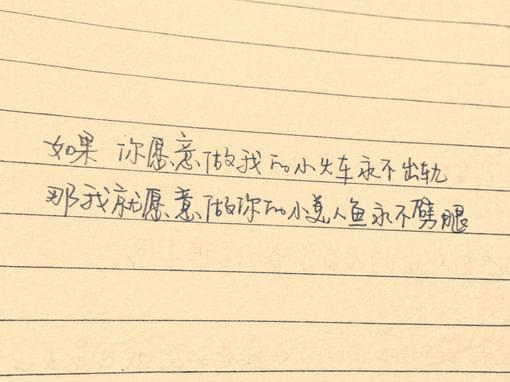 如果 你愿意做我的小火车永不出轨
那我就愿意做你的小美人鱼永不劈腿